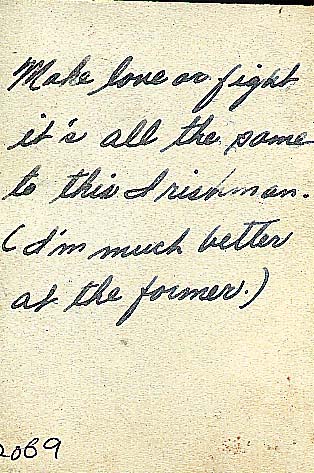 Make love or fight
it's all the same
to this Irishman.
(I'm much better
at the former.)
2069